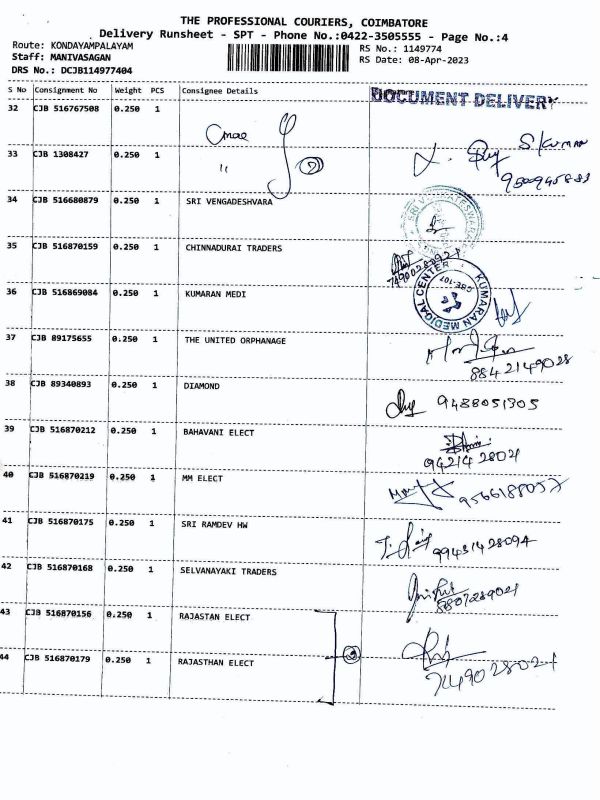 THE PROFESSIONAL COURIERS, COIMBATORE
Delivery Runsheet - SPT - Phone No.:0422-3505555 - Page No.:4
Route: KONDAYAMPALAYAM RS No.: 1149774
Staff: MANIVASAGAN RS Date: 08-Apr-2023
DRS No.: DCJB114977404
S No Consignment No Weight PCS Consignee Details DOCUMENT DELIVERY
32 CJB 516767508 0.250 1
33 CJB 1308427 0.250 1 " 2 S Kumar
34 CJB 516680879 0.250 1 SRI VENGADESHVARA
35 CJB 516870159 0.250 1 CHINNADURAI TRADERS
36 CJB 516869084 0.250 1 KUMARAN MEDI KUMARAN MEDICAL CENTER CBE-107
37 CJB 89175655 0.250 1 THE UNITED ORPHANAGE
8842149028
38 CJB 89340893 0.250 1 DIAMOND 9488051305
39 CJB 516870212 0.250 1 BAHAVANI ELECT
94214 28021
40 CJB 516870219 0.250 1 MM ELECT 9566188057
41 CJB 516870175 0.250 1 SRI RAMDEV HW 99431428094
42 CJB 516870168 0.250 1 SELVANAYAKI TRADERS
8807289021
43 CJB 516870156 0.250 1 RAJASTAN ELECT
44 CJB 516870179 0.250 1 RAJASTHAN ELECT 2